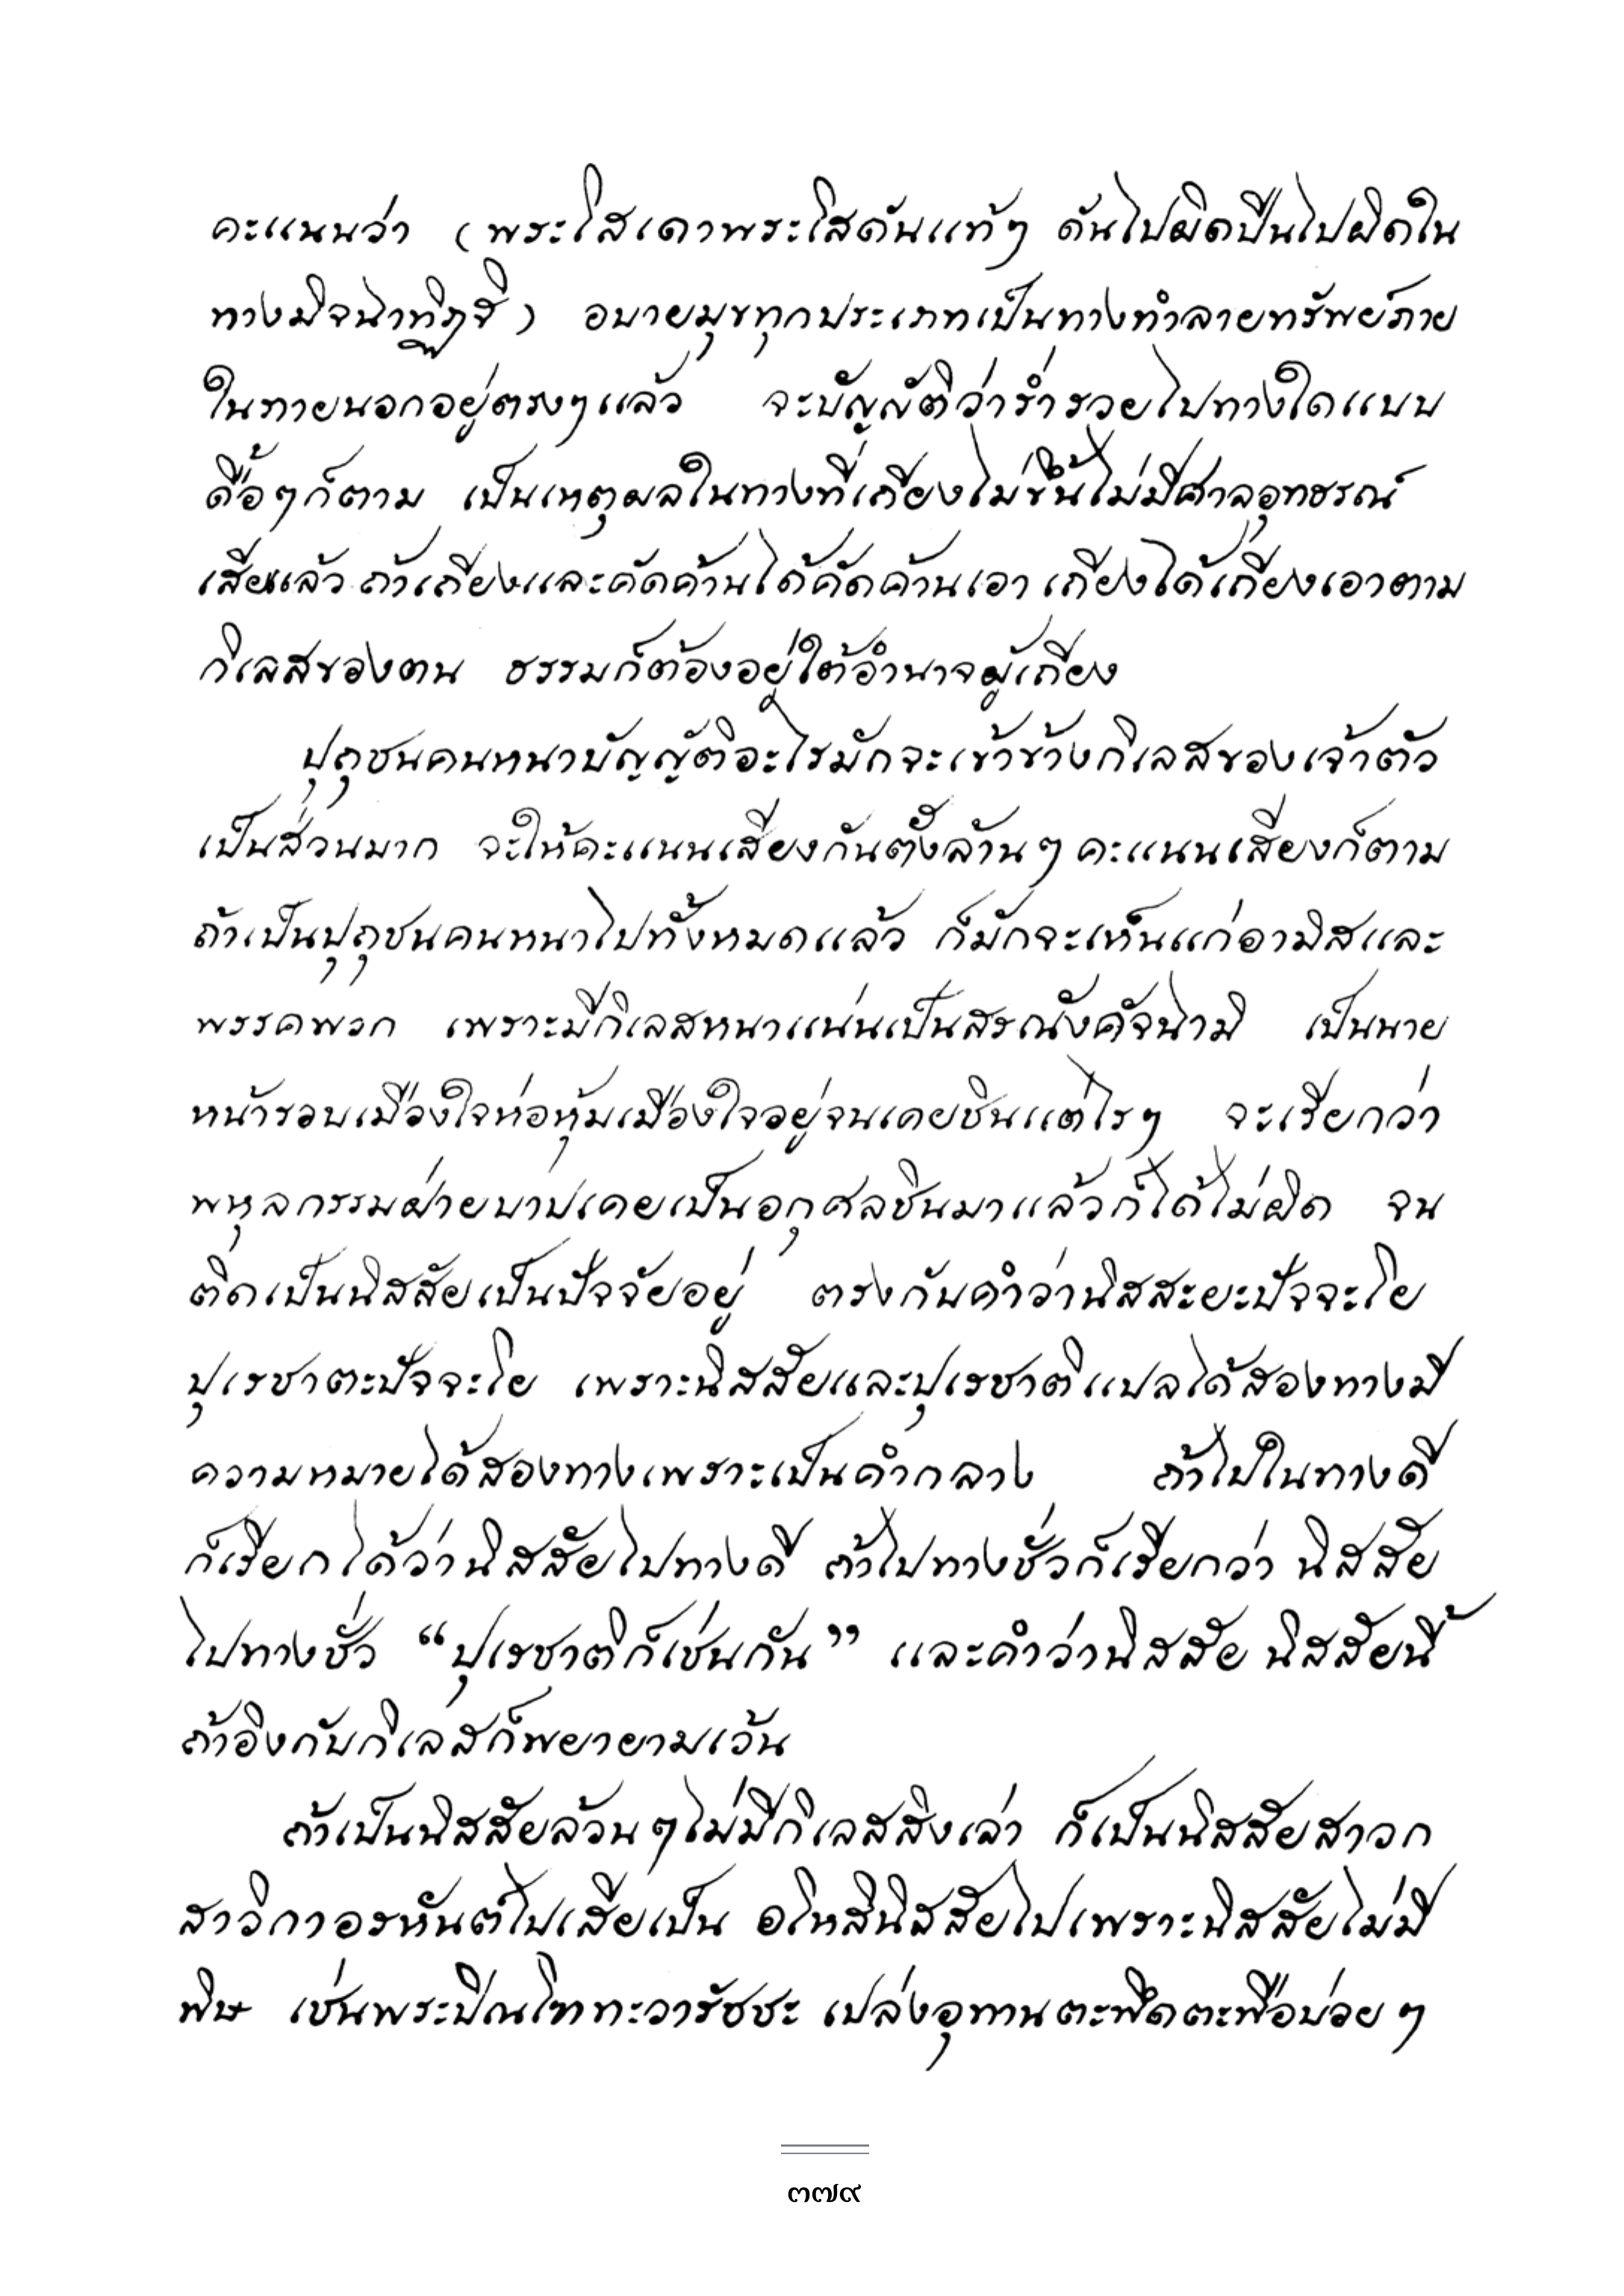 คะแนนว่า (พระโสเดาพระโสดันแท้ๆ ดันไปผิดปีนไปผิดใน
ทางมิจฉาทิฏฐิ) อบายมุขทุกประเภทเป็นทางทำลายทรัพย์ภาย
ในภายนอกอยู่ตรงๆแล้ว จะบัญญัติว่าร่ำรวยไปทางใดแบบ
ดื้อๆก็ตาม เป็นเหตุผลในทางที่เถียงไม่ขึ้นไม่มีศาลอุทธรณ์
เสียแล้ว ถ้าเถียงและคัดค้านได้คัดค้านเอา เถียงได้เถียงเอาตาม
กิเลสของตน ธรรมก็ต้องอยู่ใต้อำนาจผู้เถียง
ปุถุชนคนหนาบัญญัติอะไรมักจะเข้าข้างกิเลสของเจ้าตัว
เป็นส่วนมาก จะให้คะแนนเสียงกันตั้งล้านๆ คะแนนเสียงก็ตาม
ถ้าเป็นปุถุชนคนหนาไปทั้งหมดแล้ว ก็มักจะเห็นแก่อามิสและ
พรรคพวก เพราะมีกิเลสหนาแน่นเป็นสรณังคัจฉามิ เป็นนาย
หน้ารอบเมืองใจห่อหุ้มเมืองใจอยู่จนเคยชินแต่ไรๆ จะเรียกว่า
พหุลกรรมฝ่ายบาปเคยเป็นอกุศลชินมาแล้วก็ได้ไม่ผิด จน
ติดเป็นนิสสัยเป็นปัจจัยอยู่ ตรงกับคำว่านิสสะยะปัจจะโย
ปุเรชาตะปัจจะโย เพราะนิสสัยและปุเรชาติแปลได้สองทางมี
ความหมายได้สองทางเพราะเป็นคำกลาง ถ้าไปในทางดี
ก็เรียกได้ว่านิสสัยไปทางดี ถ้าไปทางชั่วก็เรียกว่า นิสสัย
ไปทางชั่ว “ปุเรชาติก็เช่นกัน” และคำว่านิสสัย นิสสัยนี้
ถ้าอิงกับกิเลสก็พยายามเว้น
ถ้าเป็นนิสสัยล้วนๆไม่มีกิเลสสิงเล่า ก็เป็นนิสสัยสาวก
สาวิกาอรหันต์ไปเสียเป็น อโหสินิสสัยไปเพราะนิสสัยไม่มี
พิษ เช่นพระปิณโฑทะวารัชชะ เปล่งอุทานตะพึดตะพือบ่อยๆ
๓๗๙